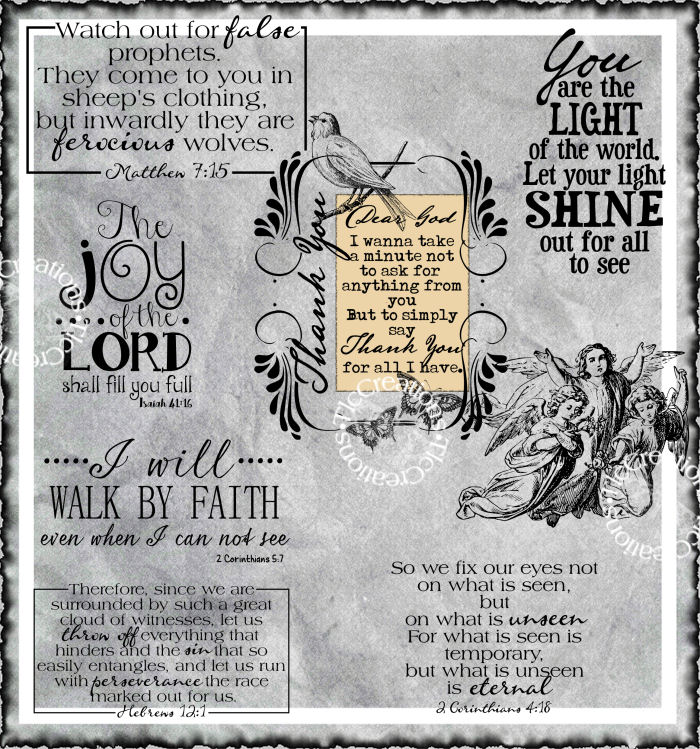 Watch out for false
prophets.
They come to you in
sheep's clothing,
but inwardly they are
ferocious wolves.
Matthew 7:15
You
are the
LIGHT
of the world.
Let your light
SHINE
out for all
to see
The
joy
of the
LORD
shall fill you full
Isaiah 61:16
Thank You
Dear God
I wanna take
a minute not
to ask for
anything from
you
But to simply
say
Thank You
for all I have.
I will
WALK BY FAITH
even when I can not see
2 Corinthians 5:7
Therefore, since we are
surrounded by such a great
cloud of witnesses, let us
throw off everything that
hinders and the sin that so
easily entangles, and let us run
with perseverance the race
marked out for us.
Hebrews 12:1
So we fix our eyes not
on what is seen,
but
on what is unseen
For what is seen is
temporary,
but what is unseen
is eternal
2 Corinthians 4:18
TlcCreations
TlcCreations